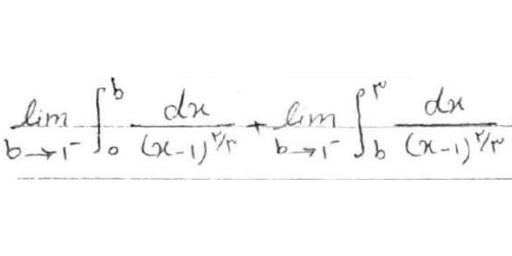 lim_{b→۱⁻} ∫_0^b dx/(x-۱)^{۲/۳} + lim_{b→۱⁻} ∫_b^۳ dx/(x-۱)^{۲/۳}